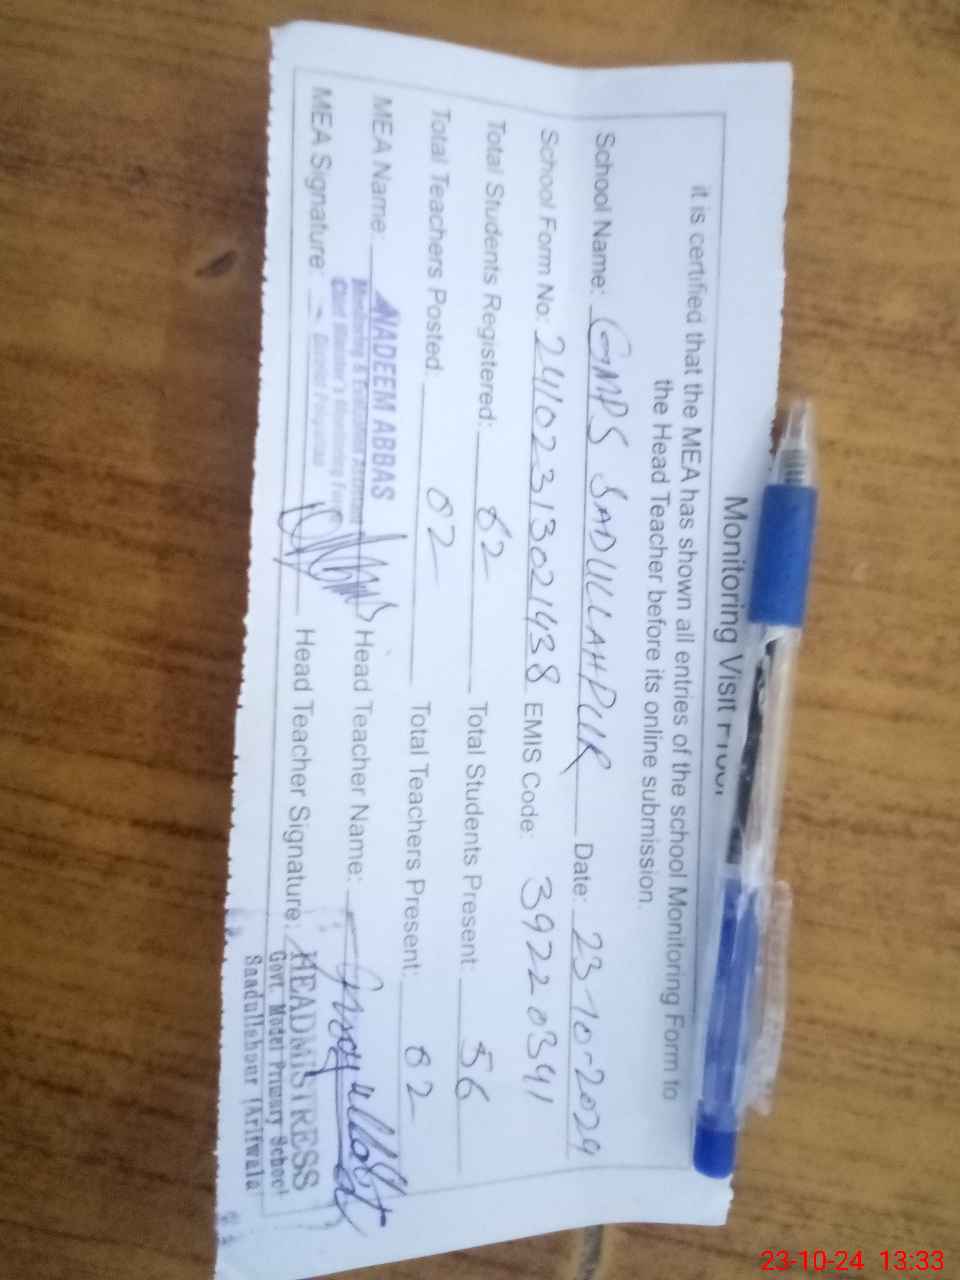 Monitoring Visit Proof
it is certified that the MEA has shown all entries of the school Monitoring Form to
the Head Teacher before its online submission.
School Name: GMPS SADULLAHPUR Date: 23-10-2024
School Form No: 24102313021438 EMIS Code: 39220391
Total Students Registered: 62 Total Students Present: 56
Total Teachers Posted 02 Total Teachers Present: 02
MEA Name: NADEEM ABBAS Head Teacher Name:
Monitoring & Evaluation Assistant
Chief Minister's Monitoring Force
MEA Signature: District Pakpattan Head Teacher Signature: HEADMISTRESS
Govt. Model Primary School
Saadullahpur (Arifwala)
23-10-24 13:33